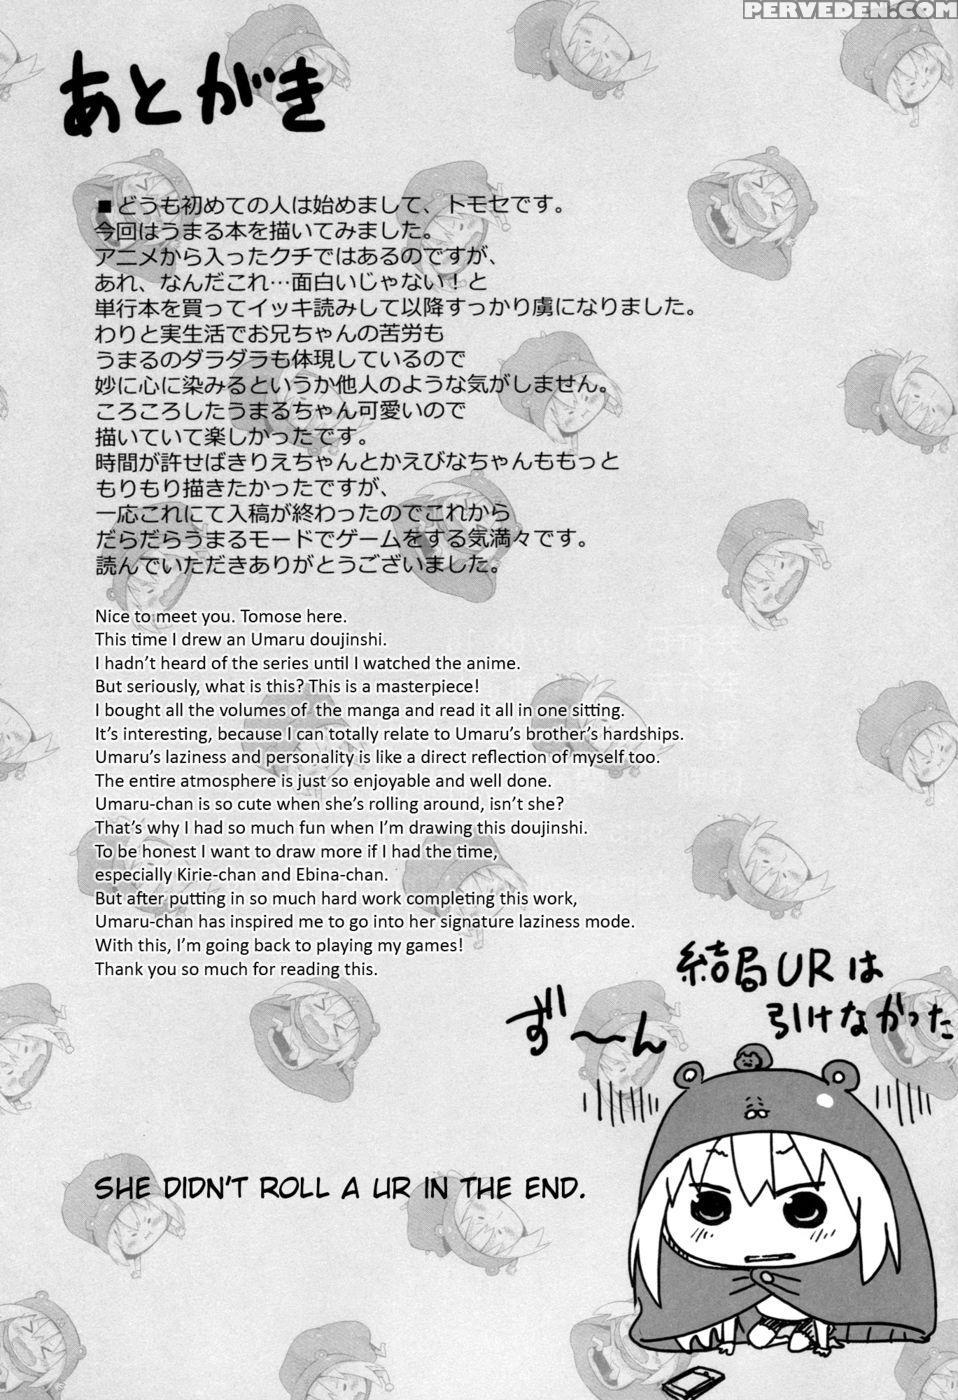 PERVEDEN.COM
あとがき
■どうも初めての人は始めまして、トモセです。
今回はうまる本を描いてみました。
アニメから入ったクチではあるのですが、
あれ、なんだこれ…面白いじゃない！と
単行本を買ってイッキ読みして以降すっかり虜になりました。
わりと実生活でお兄ちゃんの苦労も
うまるのダラダラも体現しているので
妙に心に染みるというか他人のような気がしません。
ころころしたうまるちゃん可愛いので
描いていて楽しかったです。
時間が許せばきりえちゃんとかえびなちゃんももっと
もりもり描きたかったですが、
一応これにて入稿が終わったのでこれから
だらだらうまるモードでゲームをする気満々です。
読んでいただきありがとうございました。
Nice to meet you. Tomose here.
This time I drew an Umaru doujinshi.
I hadn't heard of the series until I watched the anime.
But seriously, what is this? This is a masterpiece!
I bought all the volumes of the manga and read it all in one sitting.
It's interesting, because I can totally relate to Umaru's brother's hardships.
Umaru's laziness and personality is like a direct reflection of myself too.
The entire atmosphere is just so enjoyable and well done.
Umaru-chan is so cute when she's rolling around, isn't she?
That's why I had so much fun when I'm drawing this doujinshi.
To be honest I want to draw more if I had the time,
especially Kirie-chan and Ebina-chan.
But after putting in so much hard work completing this work,
Umaru-chan has inspired me to go into her signature laziness mode.
With this, I'm going back to playing my games!
Thank you so much for reading this.
結局URは
引けなかった
ず〜ん
SHE DIDN'T ROLL A UR IN THE END.